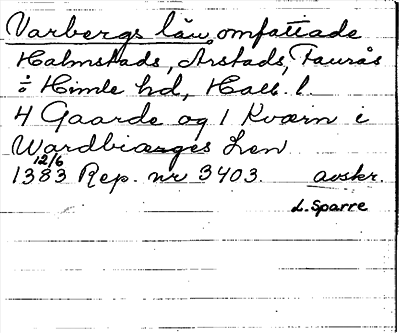 Varbergs län, omfattade
Halmstads, Årstads, Faurås
o Himle hd, Hall. l.
4 Gaarde og 1 Kværn i
Wardbiærges Len
12/6
1383 Rep. nr 3403. avskr.
L. Sparre